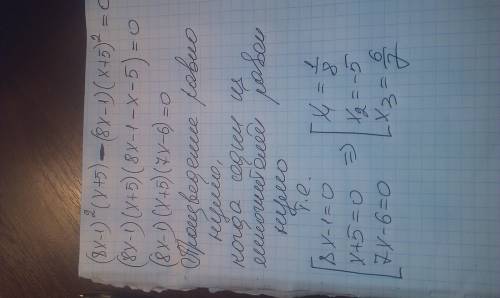 (8x-1)²(x+5)-(8x-1)(x+5)²=0
(8x-1)(x+5)(8x-1-x-5)=0
(8x-1)(x+5)(7x-6)=0
Произведение равно
нулю,
когда один из
множителей равен
нулю
т.е.
[8x-1=0 [x₁=1/8
x+5=0 => x₂=-5
[7x-6=0 [x₃=6/7